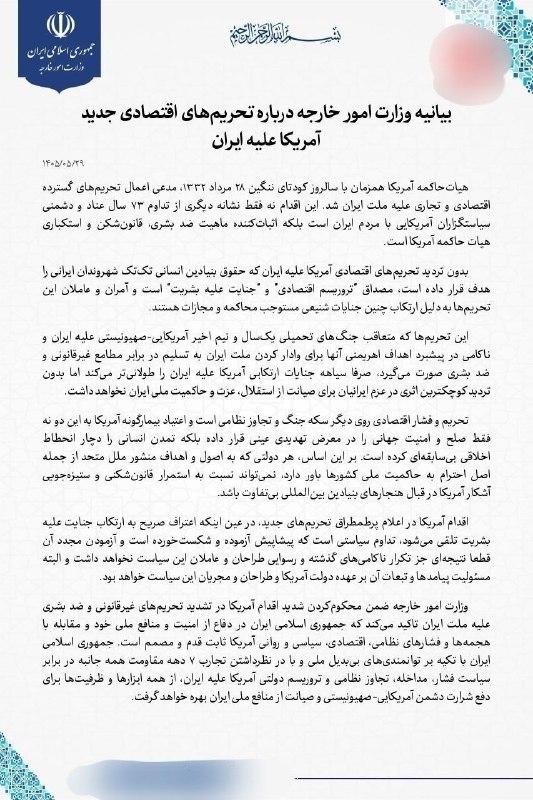 جمهوری اسلامی ایران
وزارت امور خارجه
بسم الله الرحمن الرحیم
بیانیه وزارت امور خارجه درباره تحریم‌های اقتصادی جدید
آمریکا علیه ایران
۱۴۰۵/۰۵/۲۹
هیات‌حاکمه آمریکا همزمان با سالروز کودتای ننگین ۲۸ مرداد ۱۳۳۲، مدعی اعمال تحریم‌های گسترده
اقتصادی و تجاری علیه ملت ایران شد. این اقدام نه فقط نشانه دیگری از تداوم ۷۳ سال عناد و دشمنی
سیاستگزاران آمریکایی با مردم ایران است بلکه اثبات‌کننده ماهیت ضد بشری، قانون‌شکن و استکباری
هیات حاکمه آمریکا است.
بدون تردید تحریم‌های اقتصادی آمریکا علیه ایران که حقوق بنیادین انسانی تک‌تک شهروندان ایرانی را
هدف قرار داده است، مصداق "تروریسم اقتصادی" و "جنایت علیه بشریت" است و آمران و عاملان این
تحریم‌ها به دلیل ارتکاب چنین جنایات شنیعی مستوجب محاکمه و مجازات هستند.
این تحریم‌ها که متعاقب جنگ‌های تحمیلی یک‌سال و نیم اخیر آمریکایی-صهیونیستی علیه ایران و
ناکامی در پیشبرد اهداف اهریمنی آنها برای وادار کردن ملت ایران به تسلیم در برابر مطامع غیرقانونی و
ضد بشری صورت می‌گیرد، صرفا سیاهه جنایات ارتکابی آمریکا علیه ایران را طولانی‌تر می‌کند اما بدون
تردید کوچکترین اثری در عزم ایرانیان برای صیانت از استقلال، عزت و حاکمیت ملی ایران نخواهد داشت.
تحریم و فشار اقتصادی روی دیگر سکه جنگ و تجاوز نظامی است و اعتیاد بیمارگونه آمریکا به این دو نه
فقط صلح و امنیت جهانی را در معرض تهدیدی عینی قرار داده بلکه تمدن انسانی را دچار انحطاط
اخلاقی بی‌سابقه‌ای کرده است. بر این اساس، هر دولتی که به اصول و اهداف منشور ملل متحد از جمله
اصل احترام به حاکمیت ملی کشورها باور دارد، نمی‌تواند نسبت به استمرار قانون‌شکنی و ستیزه‌جویی
آشکار آمریکا در قبال هنجارهای بنیادین بین‌المللی بی‌تفاوت باشد.
اقدام آمریکا در اعلام پرطمطراق تحریم‌های جدید، در عین اینکه اعتراف صریح به ارتکاب جنایت علیه
بشریت تلقی می‌شود، تداوم سیاستی است که پیشاپیش آزموده و شکست‌خورده است و آزمودن مجدد آن
قطعا نتیجه‌ای جز تکرار ناکامی‌های گذشته و رسوایی طراحان و عاملان این سیاست نخواهد داشت و البته
مسئولیت پیامدها و تبعات آن بر عهده دولت آمریکا و طراحان و مجریان این سیاست خواهد بود.
وزارت امور خارجه ضمن محکوم‌کردن شدید اقدام آمریکا در تشدید تحریم‌های غیرقانونی و ضد بشری
علیه ملت ایران تاکید می‌کند که جمهوری اسلامی ایران در دفاع از امنیت و منافع ملی خود و مقابله با
هجمه‌ها و فشارهای نظامی، اقتصادی، سیاسی و روانی آمریکا ثابت قدم و مصمم است. جمهوری اسلامی
ایران با تکیه بر توانمندی‌های بی‌بدیل ملی و با در نظرداشتن تجارب ۷ دهه مقاومت همه جانبه در برابر
سیاست فشار، مداخله، تجاوز نظامی و تروریسم دولتی آمریکا علیه ایران، از همه ابزارها و ظرفیت‌ها برای
دفع شرارت دشمن آمریکایی-صهیونیستی و صیانت از منافع ملی ایران بهره خواهدگرفت.